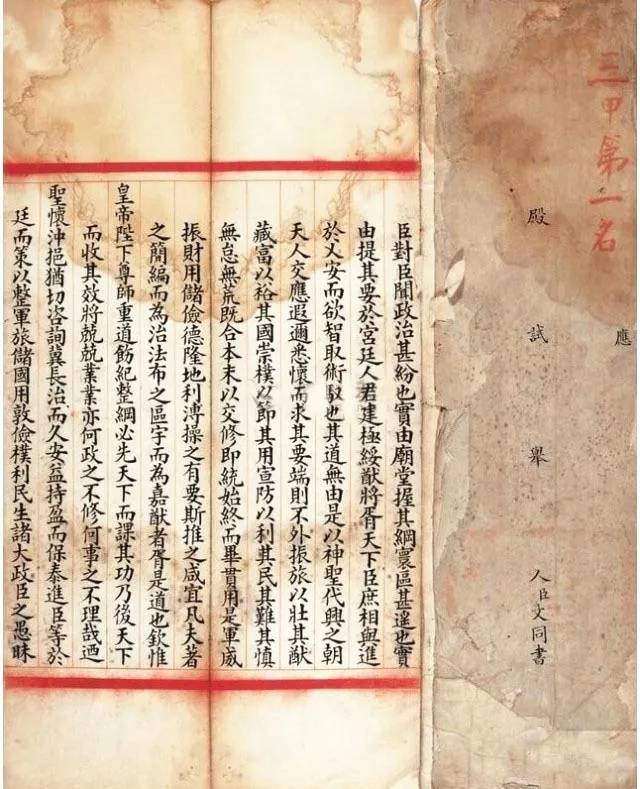 三甲第一名
應
殿試舉人臣文同書
臣對臣聞政治甚紛也實由廟堂握其綱寰區甚遙也實
由提其要於宮廷人君建極綏猷將胥天下臣庶相與進
於乂安而欲智取術馭也其道無由是以神聖代興之朝
天人交應遐邇悉懷而求其要端則不外振旅以壯其猷
藏富以裕其國崇樸以節其用宣防以利其民其難其慎
無怠無荒既合本末以交修即統始終而畢貫用是軍威
振財用儲儉德隆地利溥操之有要斯推之咸宜凡夫著
之簡編而為治法布之區宇而為嘉猷者胥是道也欽惟
皇帝陛下尊師重道飭紀整綱必先天下而課其功乃後天下
而收其效將兢兢業業亦何政之不修何事之不理哉迺
聖懷沖挹猶切咨詢冀長治而久安益持盈而保泰進臣等於
廷而策以整軍旅儲國用敦儉樸利民生諸大政臣之愚昧